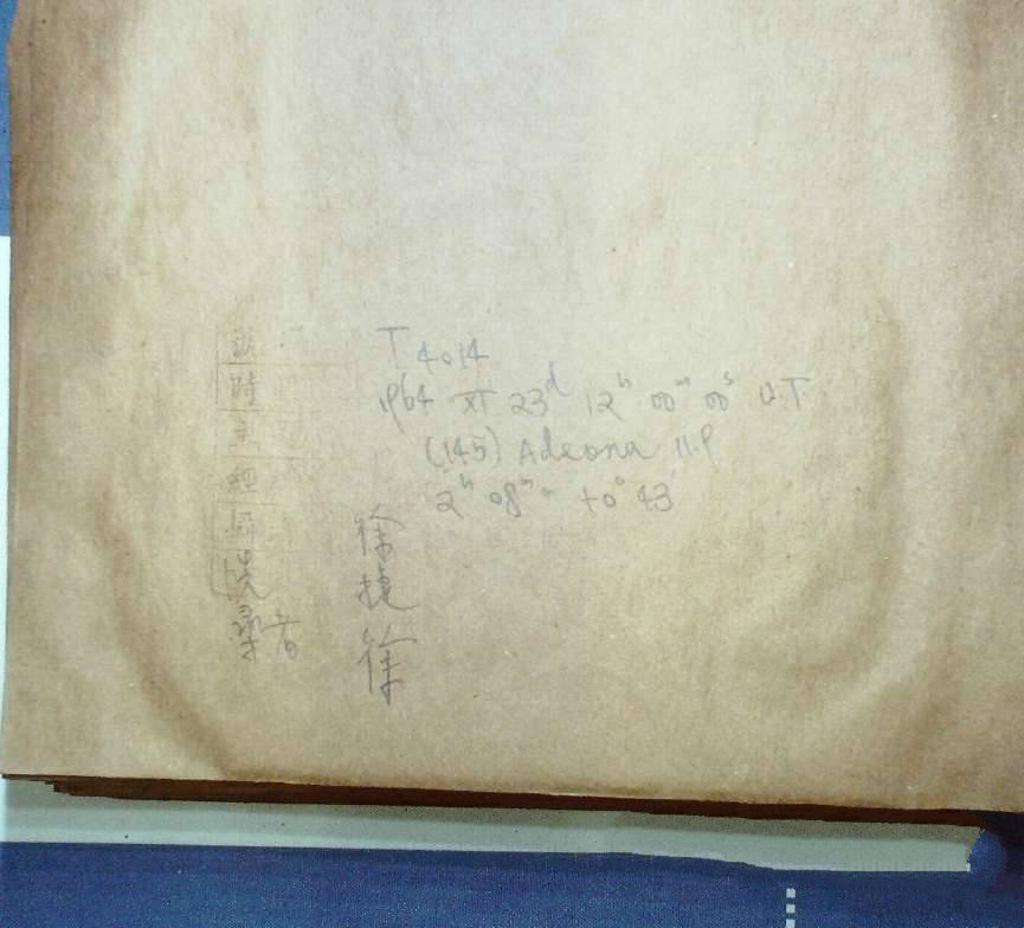 T 4014
1964 XI 23d 12h 00m 00s U.T
(145) Adeona 11.9
2h 08m +0° 43'
時
經
者
徐
捷
徐